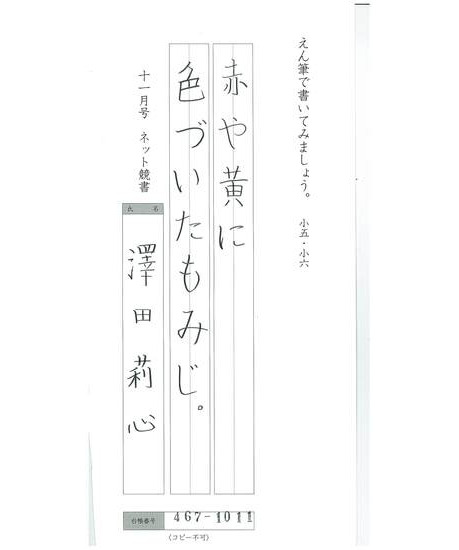 えん筆で書いてみましょう。 小五・小六
赤や黄に
色づいたもみじ。
十一月号 ネット競書
氏 名
澤田莉心
台帳番号 467-1011
(コピー不可)